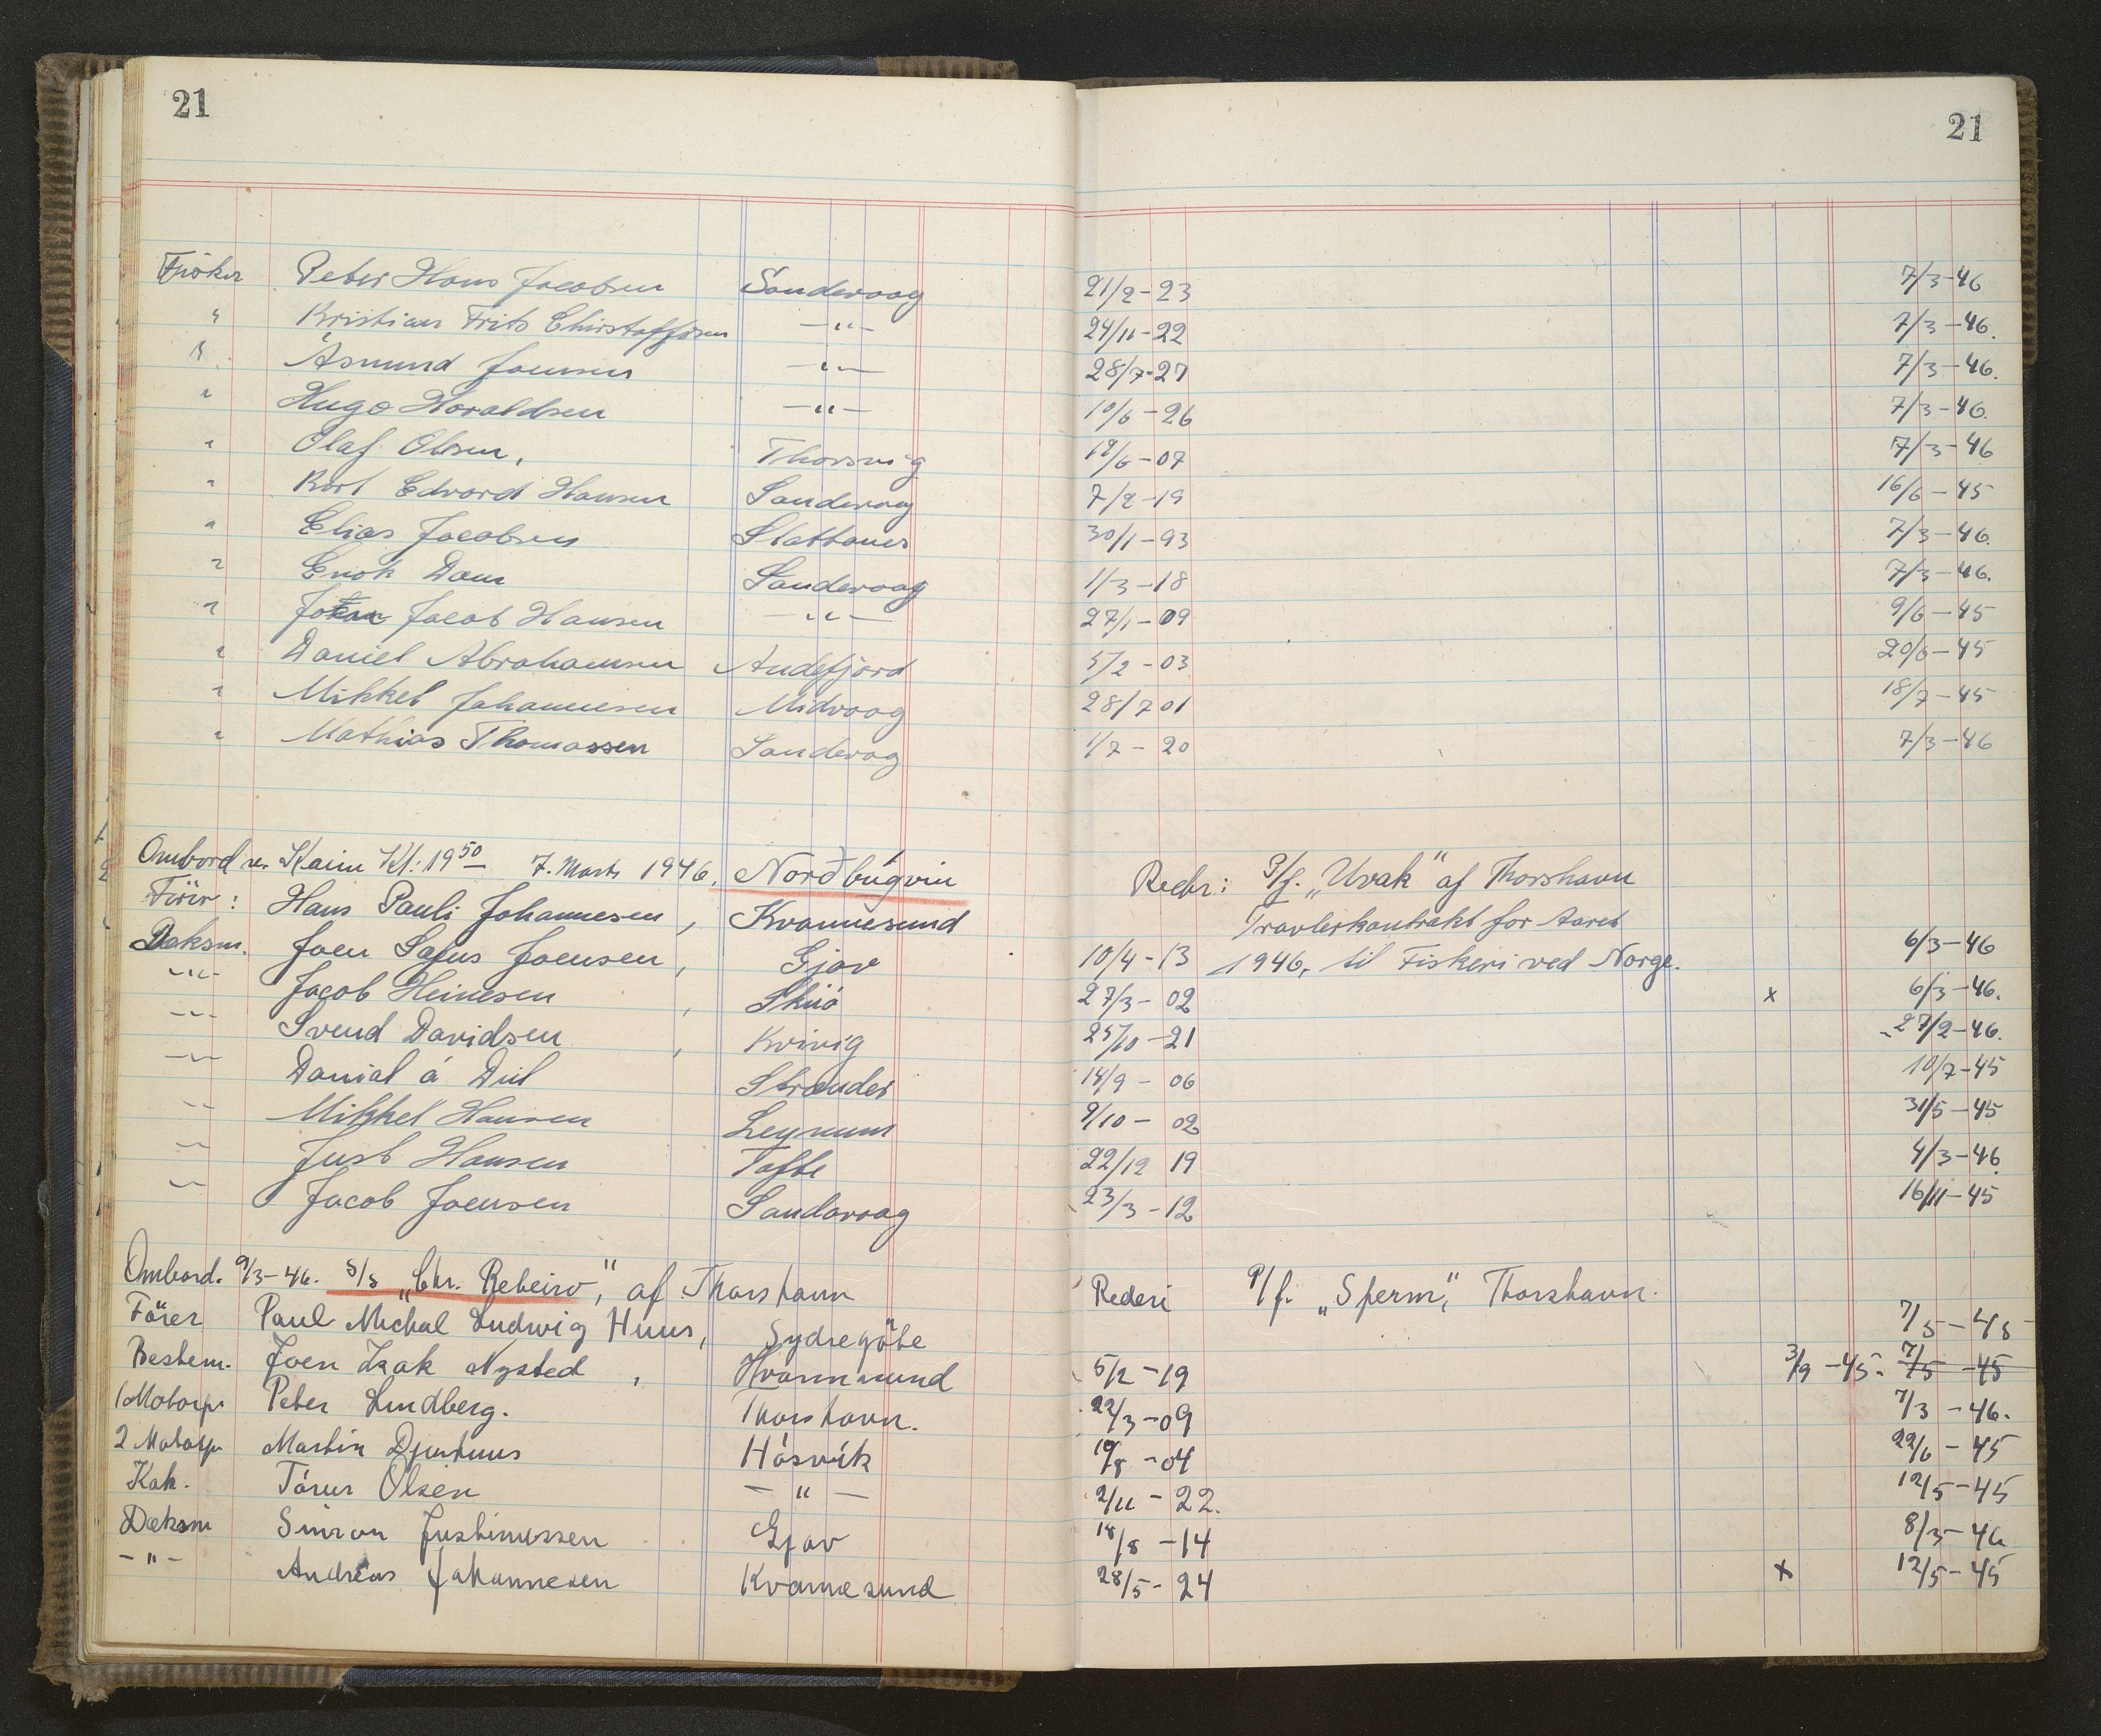 21 21
Fisker Peter Hans Jacobsen Sandevaag 21/2-23 7/3-46
" Kristian Frits Christoffersen -"- 24/11-22 7/3-46.
" Asmund Joensen -"- 28/7-27 7/3-46.
" Hugo Haraldsen -"- 10/6-26 7/3-46.
" Olaf Olsen, Thorsvig 19/6-07 7/3-46
" Karl Edvard Hansen Sandevaag 7/2-19 16/6-45
" Elias Jacobsen Slattanes 30/1-93 7/3-46.
" Enok Dam Sandevaag 1/3-18 7/3-46.
" Johan Jacob Hansen -"- 27/1-09 9/6-45
" Daniel Abrahamsen Andefjord 5/2-03 20/6-45
" Mikkel Johannesen Midvaag 28/7 01 18/7-45
" Mathias Thomassen Sandevag 1/7-20 7/3-46
Ombord v. Kaim Kl: 19 50 7. Marts 1946, Norðbúgvin Reder: P/f. „Uvak" af Thorshavn
Förir: Hans Pauli Johannesen, Kvannesund Travlerkontrakt for Aaret
Dæksm. Joen Sofus Joensen, Gjov 10/4-13 1946, til Fiskeri ved Norge. 6/3-46
-"- Jacob Heinesen, Skuö 27/3-02 x 6/3-46.
-"- Svend Davidsen, Kvivig 25/10-21 27/2-46.
-"- Danial á Dul Strænder 14/9-06 10/7-45
-"- Mikkel Hansen Leynum 9/10-02 31/5-45
-"- Just Hansen Tofte 22/12 19 4/3-46.
-"- Jacob Joensen Sandavaag 23/3-12 16/11-45
Ombord. 9/3-46. S/S „Chr. Rebeiro", af Thorshavn Rederi P/f. „Sperm", Thorshavn.
Förer Paul Michal Ludwig Huus, Sydregöte 7/5-45
Bestem. Joen Isak Nysted, Hvannasund 5/2-19 3/9-45. 7/5-45
1 Motorp. Peter Lindberg. Thorshavn. 22/3-09 7/3-46.
2 Motorp. Martin Djurhuus Hósvík 19/8-04 22/6-45
Kok. Tórur Olsen -"- 2/11-22. 12/5-45
Dæksm Simon Justinussen Gjov 18/8-14 8/3-46
-"- Andreas Johannesen Kvannesund 28/5-24 x 12/5-45